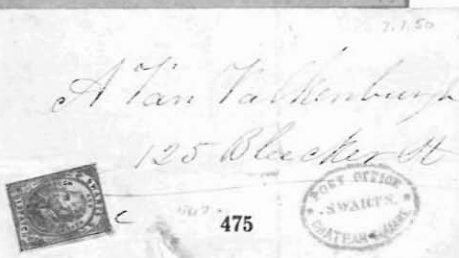 7.7.50
A Van Valkenburgh
125 Bleecker St
475
POST OFFICE
SWARTS
CHATHAM SQUARE